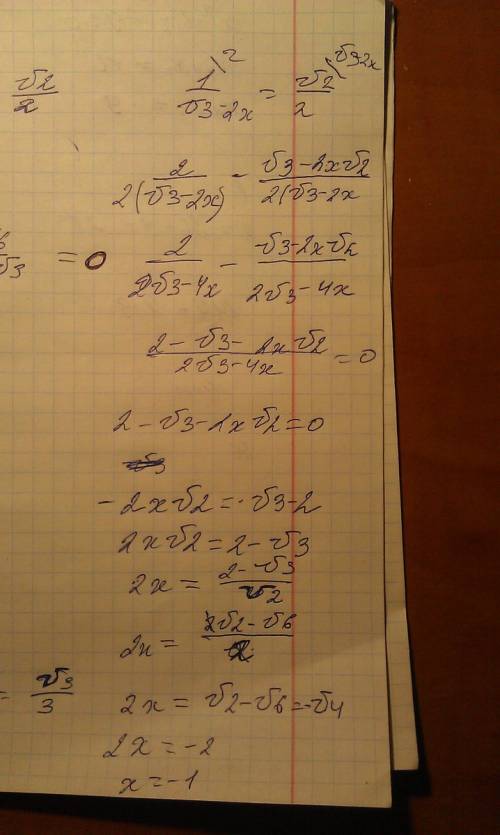 √2/2
1/(√3-2x) \2 = √2/2 \√3 2x
2/(2(√3-2x)) - (√3-2x√2)/(2(√3-2x
/√3 = 0
2/(2√3-4x) - (√3-2x√2)/(2√3-4x)
(2-√3-2x√2)/(2√3-4x) = 0
2-√3-2x√2=0
-2x√2=-√3-2
2x√2=2-√3
2x = (2-√3)/√2
2x = (2√2-√6)/2
= √3/3
2x = √2-√6=-√4
2x=-2
x=-1